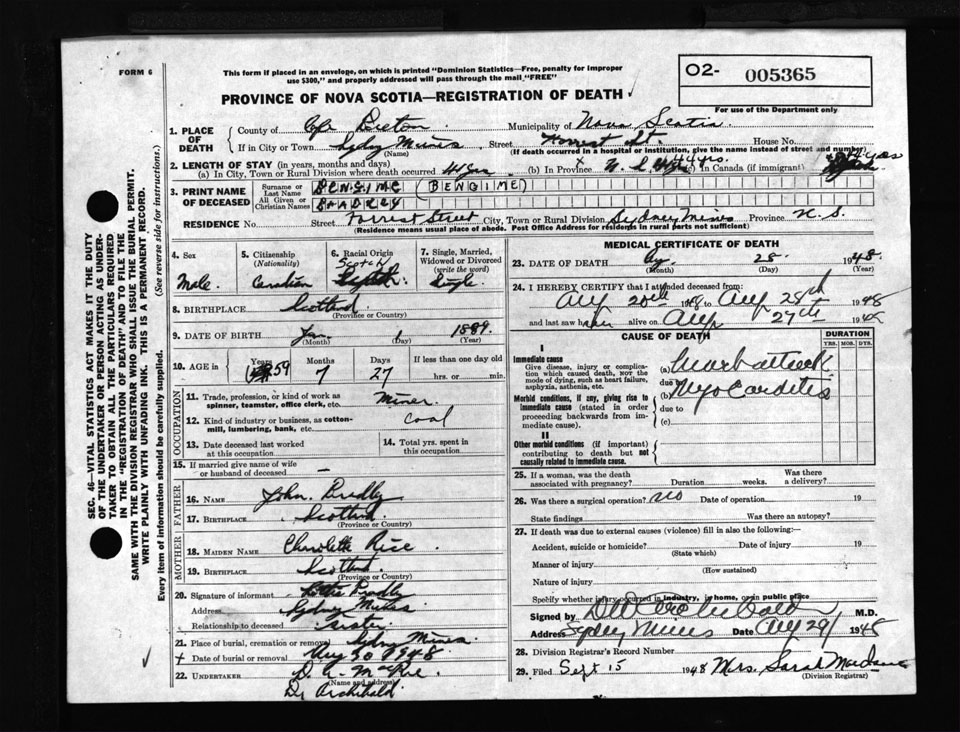 FORM 6
This form if placed in an envelope, on which is printed "Dominion Statistics—Free, penalty for improper
use $300," and properly addressed will pass through the mail "FREE"
O2- 005365
For use of the Department only
PROVINCE OF NOVA SCOTIA—REGISTRATION OF DEATH
SEC. 46—VITAL STATISTICS ACT MAKES IT THE DUTY
OF THE UNDERTAKER OR PERSON ACTING AS UNDER-
TAKER TO OBTAIN ALL THE PARTICULARS REQUIRED
IN THE "REGISTRATION OF DEATH" AND TO FILE THE
SAME WITH THE DIVISION REGISTRAR WHO SHALL ISSUE THE BURIAL PERMIT.
WRITE PLAINLY WITH UNFADING INK. THIS IS A PERMANENT RECORD.
Every item of information should be carefully supplied. (See reverse side for instructions.)
1. PLACE OF DEATH County of Cape Breton Municipality of Nova Scotia
If in City or Town Sydney Mines (Name) Street Forrest St. House No.
(If death occurred in a hospital or institution, give the name instead of street and number)
2. LENGTH OF STAY (in years, months and days)
(a) In City, Town or Rural Division where death occurred 44 yrs (b) In Province N. S. 44 yrs. (c) In Canada (if immigrant)
3. PRINT NAME OF DECEASED Surname or Last Name BENGIME (BENGIME)
All Given or Christian Names BRADLEY
RESIDENCE No. Street Forrest Street City, Town or Rural Division Sydney Mines Province N. S.
(Residence means usual place of abode. Post Office Address for residents in rural parts not sufficient)
4. Sex
Male
5. Citizenship (Nationality)
Canadian
6. Racial Origin
Scotch
7. Single, Married, Widowed or Divorced (write the word)
Single
8. BIRTHPLACE Scotland
(Province or Country)
9. DATE OF BIRTH Jan 1889
(Month) (Day) (Year)
10. AGE in Years 59 Months 7 Days 27 If less than one day old
hrs. or min.
OCCUPATION
11. Trade, profession, or kind of work as spinner, teamster, office clerk, etc. Miner
12. Kind of industry or business, as cotton-mill, lumbering, bank, etc. Coal
13. Date deceased last worked at this occupation
14. Total yrs. spent in this occupation
15. If married give name of wife or husband of deceased —
FATHER
16. NAME John Bradly
17. BIRTHPLACE Scotland
(Province or Country)
MOTHER
18. MAIDEN NAME Charlotte Rice
19. BIRTHPLACE Scotland
(Province or Country)
20. Signature of informant Lottie Bradly
Address Sydney Mines
Relationship to deceased Sister
21. Place of burial, cremation or removal Sydney Mines
Date of burial or removal Aug 30 1948
22. UNDERTAKER D. A. MacRae
(Name and address)
Dr Archibald
MEDICAL CERTIFICATE OF DEATH
23. DATE OF DEATH Aug. 28. 1948.
(Month) (Day) (Year)
24. I HEREBY CERTIFY that I attended deceased from:
Aug 20th 1948 to Aug 28th 1948
and last saw him alive on Aug 27th 1948
CAUSE OF DEATH
DURATION
YRS. MOS. DYS.
I
Immediate cause
Give disease, injury or complication which caused death, NOT the mode of dying, such as heart failure, asphyxia, asthenia, etc.
(a) Heart attack
due to
Morbid conditions, if any, giving rise to immediate cause (stated in order proceeding backwards from immediate cause).
(b) Myocarditis
due to
(c)
II
Other morbid conditions (if important) contributing to death but not causally related to immediate cause.
25. If a woman, was the death associated with pregnancy? Duration weeks. Was there a delivery?
26. Was there a surgical operation? no Date of operation 19
State findings Was there an autopsy?
27. If death was due to external causes (violence) fill in also the following:—
Accident, suicide or homicide? Date of injury 19
(State which)
Manner of injury
(How sustained)
Nature of injury
Specify whether injury occurred in industry, in home, or in public place
Signed by Archibald M.D.
Address Sydney Mines Date Aug 29/ 1948
28. Division Registrar's Record Number
29. Filed Sept 15 1948 Mrs. Sarah
(Division Registrar)